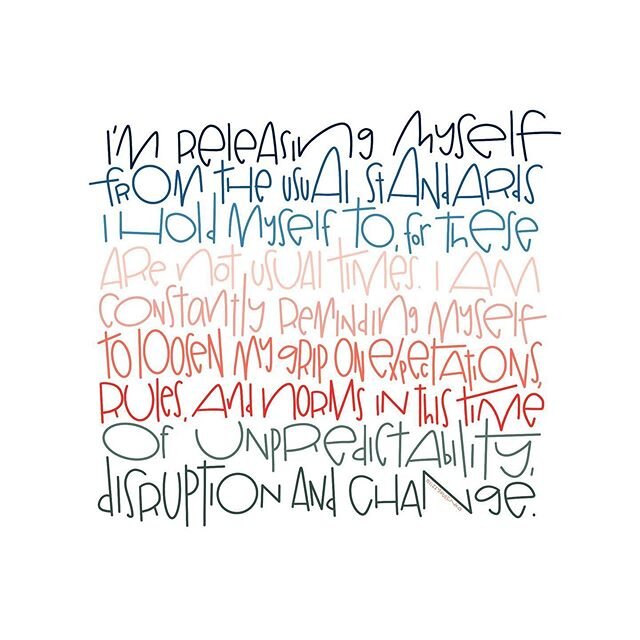 I'M Releasing Myself
from the usual standards
I Hold Myself to, for these
are not usual times. I am
constantly reminding myself
to loosen my grip on expectations,
rules, and norms in this time
of unpredictability,
disruption and change.